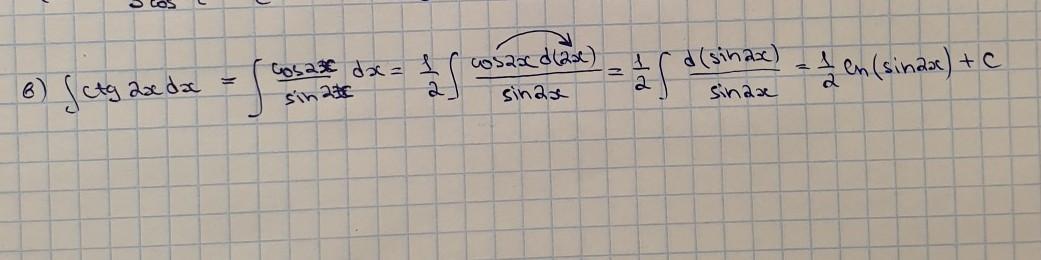 в) ∫ctg 2x dx = ∫ cos2x/sin2x dx = 1/2 ∫ cos2x d(2x)/sin2x = 1/2 ∫ d(sin2x)/sin2x = 1/2 ln(sin2x) + C